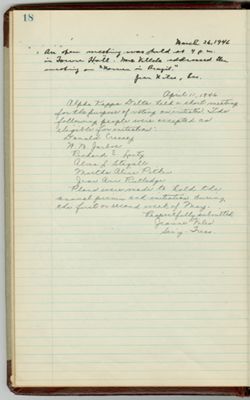 18
March 26, 1946
An open meeting was held at 4 p.m.
in Towne Hall. Mrs. addressed the
meeting on "Women in Brazil".
Jean Niles, Sec.
April 11, 1946
Alpha Kappa Delta held a short meeting
for the purpose of voting on initiates. The
following people were accepted as
eligible for initiation:
Donald Cressey
W. B.
Richard E. Lentz
Alice L. Stegall
Martha Alice
Jean Ann Rutledge
Plans were made to hold the
annual picnic and initiation during
the first or second week of May.
Respectfully submitted
Jeanne Niles
Sec'y-Treas.